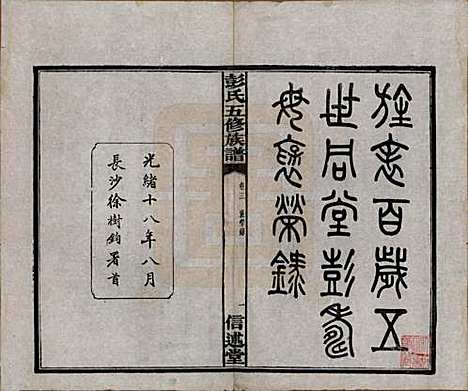 旌表百歲五
世同堂彭
母褒榮錄
彭氏五修族譜
卷三 褒榮錄
一
信述堂
光緒十八年八月
長沙徐樹鈞署首